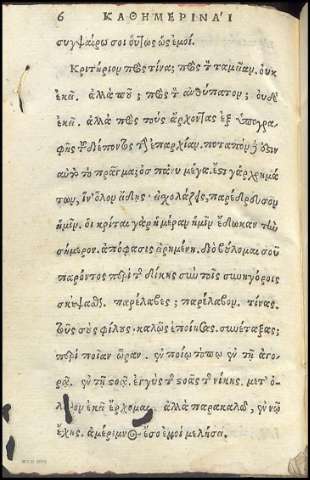 6 ΚΑΘΗΜΕΡΙΝΑΊ
συγχαίρω σοι οὕτως ὡς ἐμοί.
Κριτήριον πρὸς τίνα; πρὸς τὸν ταμίαν. οὐκ
ἐκεῖ. ἀλλὰ ποῦ; πρὸς τὸν ἀνθύπατον; οὐδὲ
ἐκεῖ. ἀλλὰ πρὸς τοὺς ἄρχοντας ἐξ ὑπογρα
φῆς τοῦ διέποντος τὴν ἐπαρχίαν. ποταπὸν
αὐτὸ τὸ πρᾶγμα; οὐ πάνυ μέγα. ἔστι γὰρ χρημά
των, ἵν' ὅλον ᾔδης. σχολάζεις, παρέδρευσον
ἡμῖν. οἱ κριταὶ γὰρ ἡμέραν ἡμῖν ἔδωκαν τὴν
σήμερον. ἀπόφασις διὸ βούλομαι σοῦ
παρόντος περὶ τῆς δίκης σὺν τοῖς συνηγόροις
σκέψασθαι. παρέλαβες; παρέλαβον. τίνας;
τοὺς σοὺς φίλους. καλῶς ἐποίησας. συνέταξας;
περὶ ποίαν ὥραν. ἐν ποίῳ τόπῳ ἐν τῇ ἀγο
ρᾷ. ἐν τῇ στοᾷ. ἐγγὺς τῆς στοᾶς τῆς νίκης. μετ' ὀ
λίγον ἐκεῖ ἔρχομαι. ἀλλὰ παρακαλῶ, ἐν νῷ
ἔχῃς. ἀμέριμνος ἔσο ἐμοὶ μελήσει.